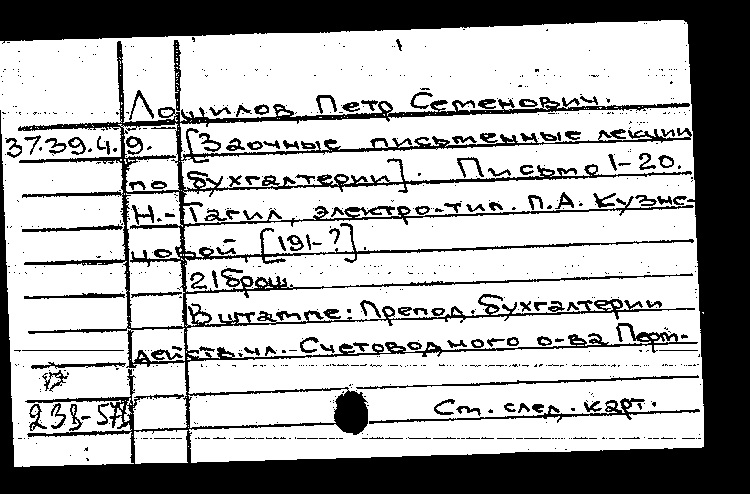 Лощилов, Петр Семенович.
37.39.4.9. [Заочные письменные лекции
по бухгалтерии]. Письмо 1-20.
Н.-Тагил, электро-тип. П.А. Кузне-
цовой, [191-?].
21 брош.
В штампе: Препод. бухгалтерии
действ. чл. Счетоводного о-ва Перм-
Ст. след. карт.